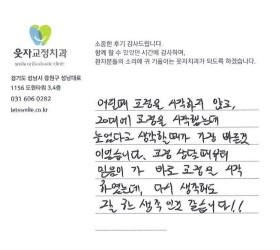 웃자교정치과
smile orthodontic clinic
경기도 성남시 중원구 성남대로
1156 도원타워 3,4층
031 606 0282
letssmile.co.kr
소중한 후기 감사드립니다.
함께 할 수 있었던 시간에 감사하며,
환자분들의 소리에 귀 기울이는 웃자치과가 되도록 하겠습니다.
어릴때 교정을 시작하지 않고,
20대에 교정을 시작했는데
늦었다고 생각할때가 가장 빠른것
이었습니다. 교정 상담때부터
믿음이 가 바로 교정을 시작
하였는데, 다시 생각해도
잘 한 생각 인것 같습니다!!